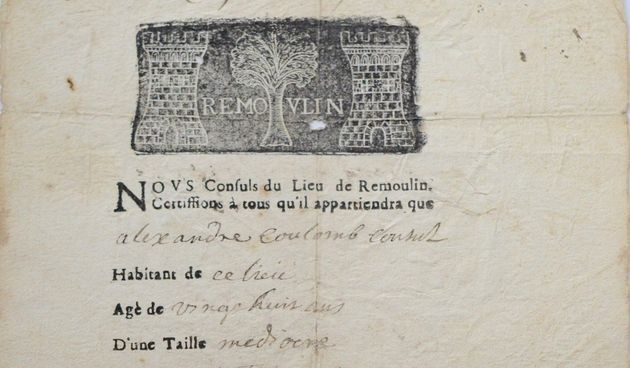 REMOVLIN
NOVS Consuls du Lieu de Remoulin,
Certiffions à tous qu'il appartiendra que
alexandre Coulomb Consul
Habitant de ce lieu
Agè de vingt huit ans
D'une Taille mediocre